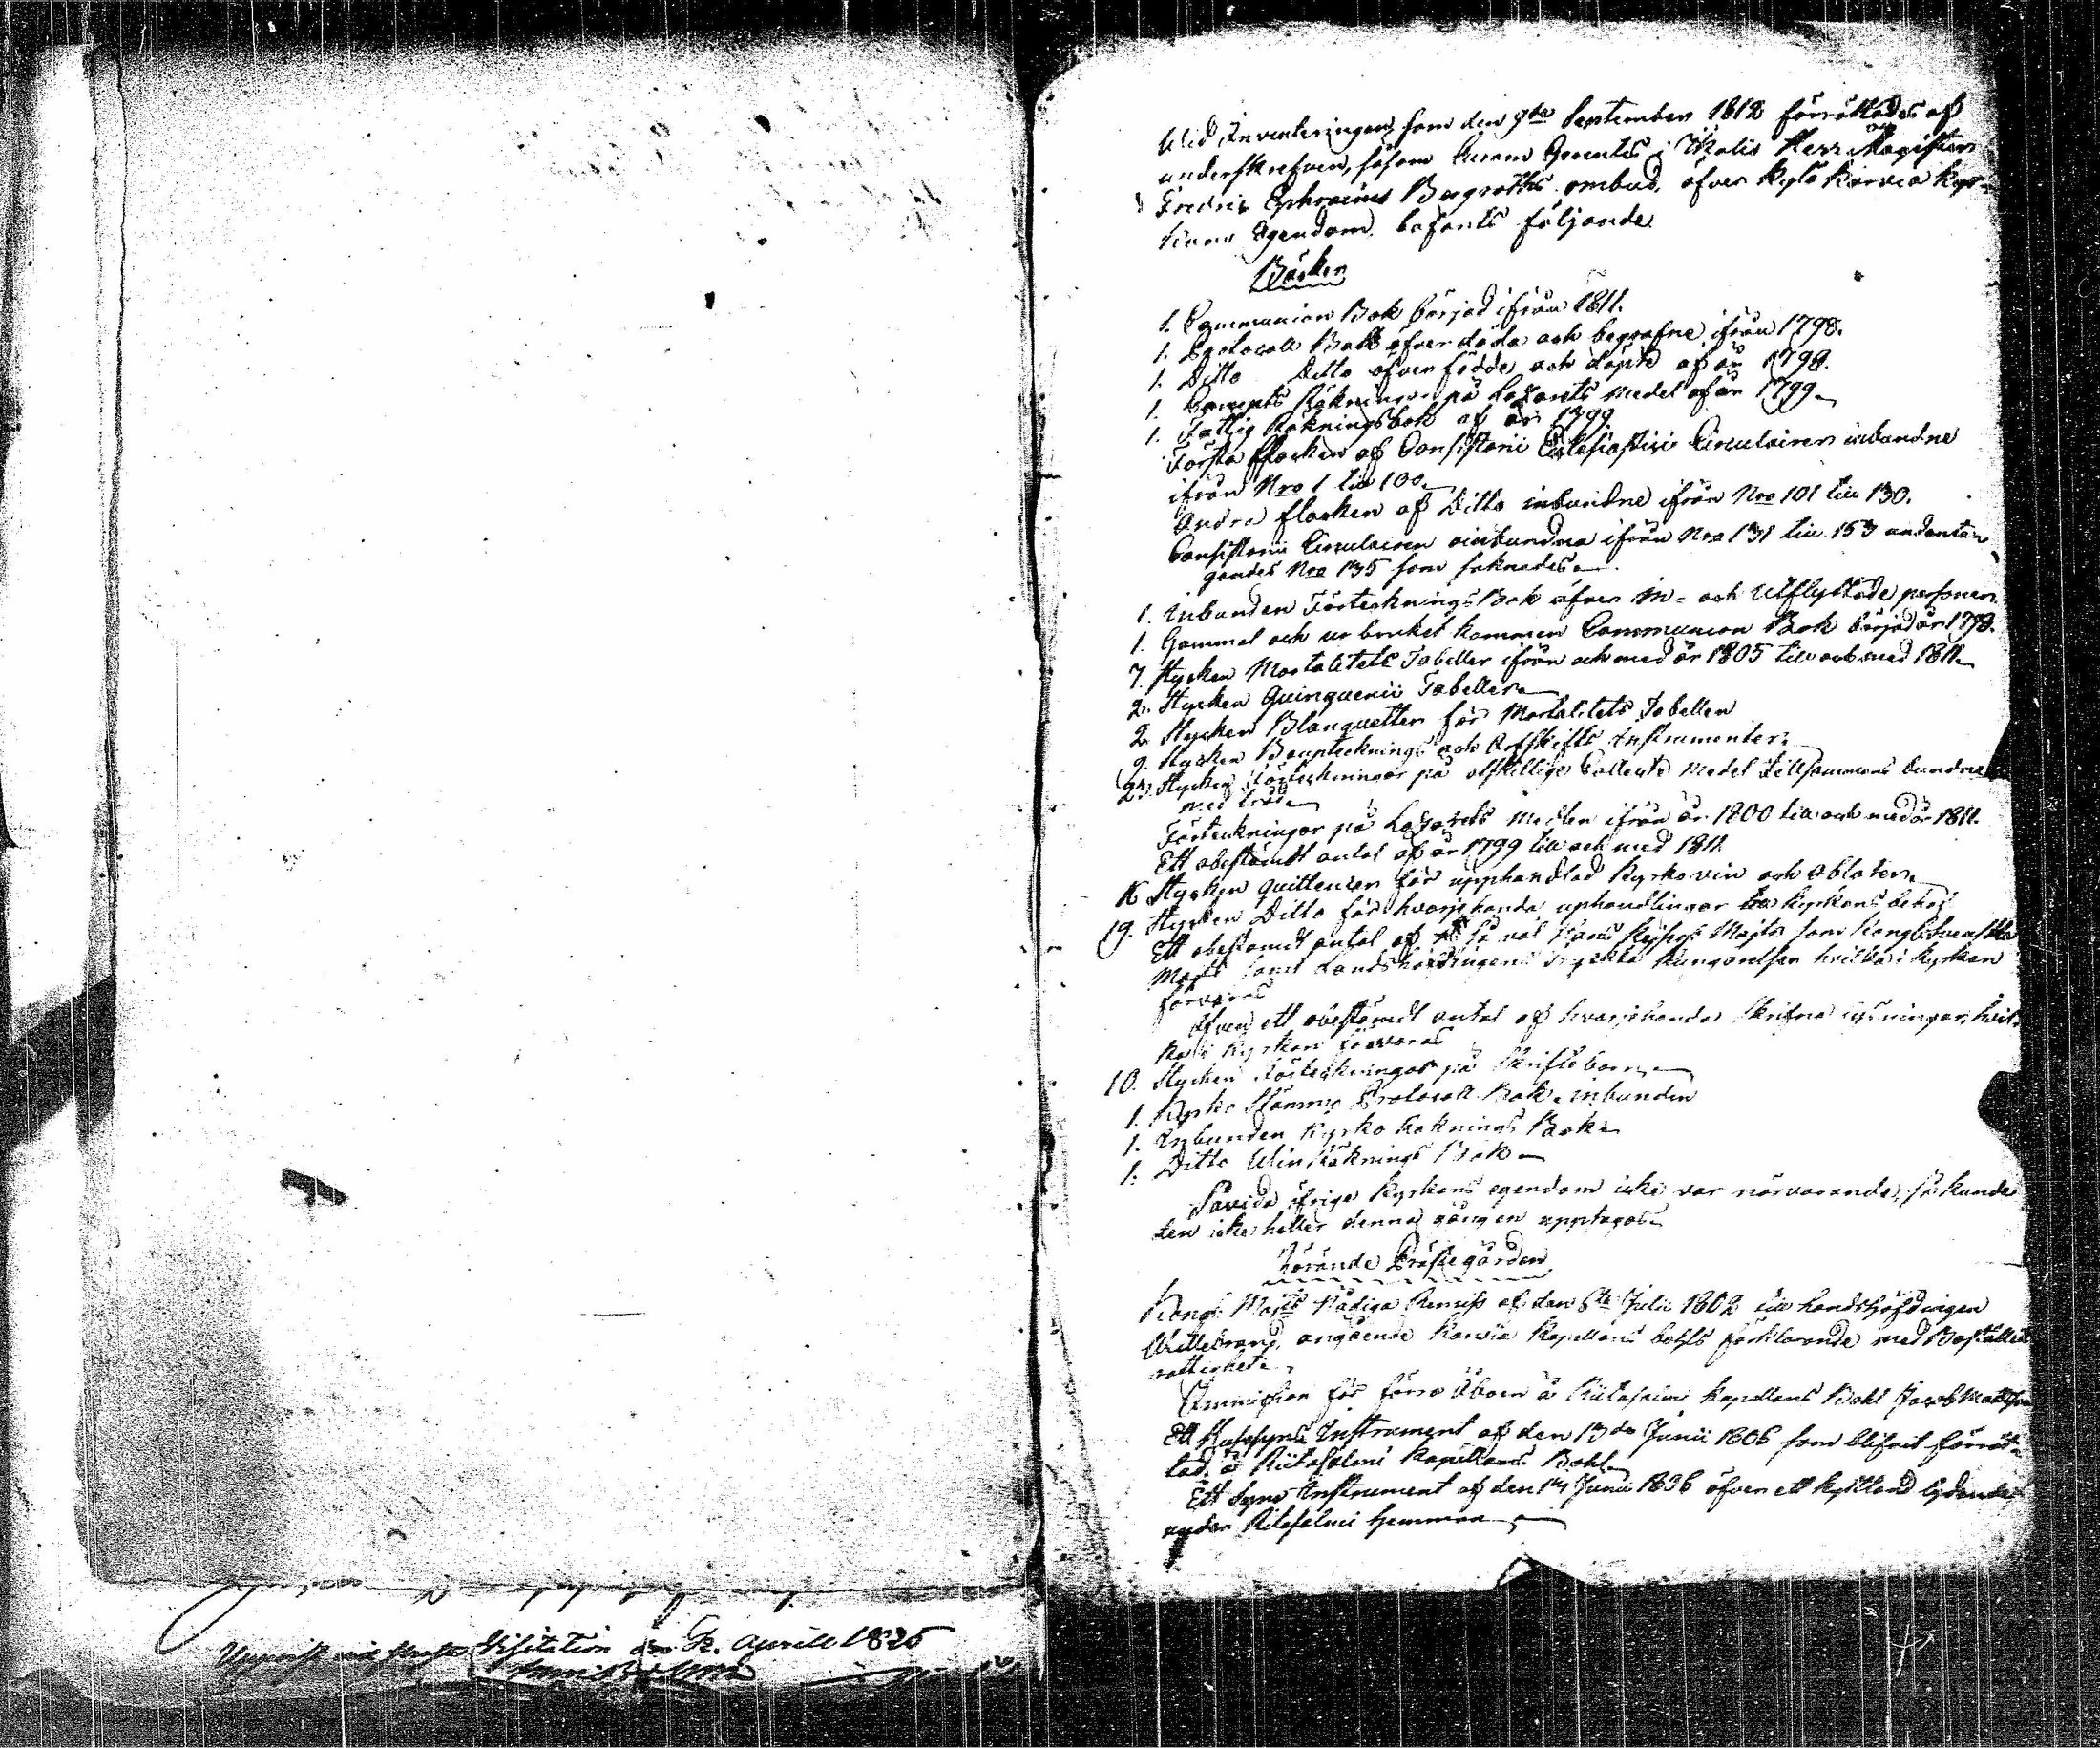 Visitation den 12. Aprill 1825
Wid Inventeringen, som den 9de September 1812 förrättades af
underskrefven, såsom Curam Gerentis i Ikalis Herr Magistern
Fredric Ephraims Bergroths ombud, öfver Kyro Karvia Kyr-
kans Egendom befants följande
Böcker
1. Communion Bok börjad ifrån 1811.
1. Protocolls Bok öfver döda och begrafne ifrån 1798.
1. Ditto Ditto öfver födde och döpte af år 1798.
1. Räkningar på Lazaretts medel af år 1799
1. Fattig Räkningsbok af år 1799
Första flocken af Consistorii Ecclesiastici Circulairer inbundne
ifrån Nro 1 till 100.
Andra flocken af Ditto inbundne ifrån Nro 101 till 130.
Consistorii Circulairer oinbundna ifrån Nro 131 till 153 undantan-
gandes Nro 135 som saknades.
1. Inbunden Förtecknings Bok öfver in- och utflyttade personer.
1. Gammal och ur bruket kommen Communion Bok börjad år 1798.
7. Stycken Mortalitets Tabeller ifrån och med år 1805 till och med 1811.
2. Stycken Quinquenii Tabeller
2. Stycken Blanquetter för Mortalitets Tabeller
9. Stycken Beuptecknings och Arfskifts Instrumenter.
23. Stycken Förteckningar på åtskillige Collects Medel tillsammans bundne
med tråd
Förteckningar på Lazaretts Medlen ifrån år 1800 till och med år 1811.
Ett obestämdt antal af år 1799 till och med 1811.
16 Stycken quittencer för upphandlad Kyrko vin och oblater.
19. Stycken Ditto för hvarjehanda uphandlingar till Kyrkans behof
Ett obestämdt antal af så väl Hans Kejserl. Majts som Kongl. Svenska
Majts samt Landshöfdingens tryckta Kungörelser hvilka i Kyrkan
förvaras
Äfven ett obestämdt antal af hvarjehanda Skrifna lysningar, hvil-
ka i Kyrkan förvaras
10. Stycken Förteckningar på Skriftebarn.
1. Kyrko Stämmo Protocolls Bok inbunden
1. Inbunden Kyrko Räknings Bok
1. Ditto Win Räknings Bok
Såvida öfrige Kyrkans egendom icke var närvarande, så kunde
den icke heller denna gången upptagas.
Rörande Prästegården
Kongl. Majts Nådiga Remiss af den 6te Julii 1802 till Landshöfdingen
Willebrand, angående Karvia Kapellans bohls förklarande med Boställs
rättighet.
Immission för förra Åboen å Kapellans Bohl Jacob Mattsson
Ett Husesyns Instrument af den 13de Junii 1806 som blifvit förrät-
tad å Kapellans Bohl
Ett Syns Instrument af den 14 Junii 1806 öfver ett kyttland lydande
under hemman